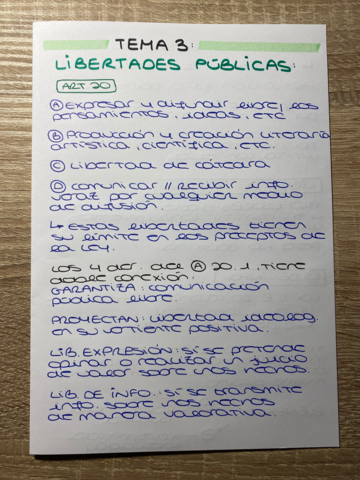 TEMA 3:
LIBERTADES PÚBLICAS:
ART 20
Ⓐ Expresar y difundir libre/ los
pensamientos, ideas, etc
Ⓑ Producción y creación literaria
artística, científica, etc.
Ⓒ Libertad de cátedra
Ⓓ comunicar // recibir info.
veraz por cualquier medio
de difusión.
↳ Estas libertades tienen
su límite en los preceptos de
la ley.
Los 4 der. del Ⓐ 20.1, tiene
doble conexión.
GARANTIZA: comunicación
pública libre.
PROYECTAN: libertad ideolog.
en su vertiente positiva.
LIB. EXPRESIÓN: si se pretende
opinar o realizar un juicio
de valor sobre unos hechos.
LIB. DE INFO. si se transmite
info. sobre unos hechos
de manera valorativa.